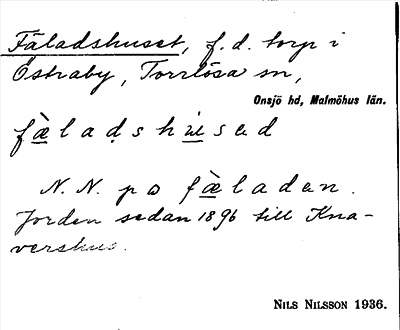 Fäladshuset, f.d. torp i
Östraby, Torrlösa sn,
Onsjö hd, Malmöhus län.
fæladshusəd
N.N. på fæladen.
Jorden sedan 1896 till Kna-
vershus.
NILS NILSSON 1936.